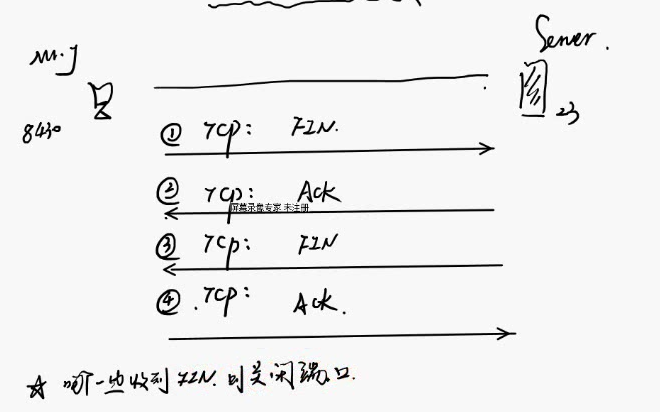 Mr.J
Server.
8430
23
① TCP: FIN.
② TCP: Ack
屏幕录像专家 未注册
③ TCP: FIN
④ .TCP: Ack.
☆ 哪一些收到 FIN. 时关闭端口.